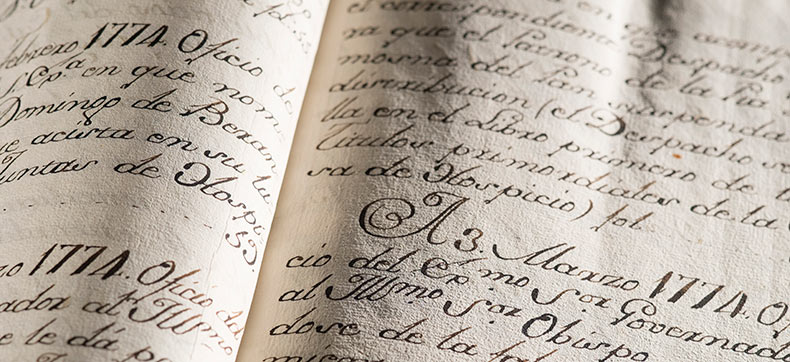 pl. 52.
febrero 1774. Oficio de
S. Cp.ª en que nom
Domingo de Beram
e acista en su lu
Juntas de Hospi
53.
ro 1774. Oficio de
ador al Illmo
e le dá p
el correspondiente Despacho
ra que el Patrono de la Pia
mosna del Pan suspenda
distribucion (el Despacho se
lla en el Libro primero de
Titulos primordiales de la C
sa de Hospicio) fol.
A 3. Marzo 1774. O
cio del Ex.mo S.or Governad
al Illmo S.or Obispo
dose de la